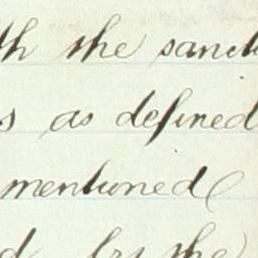 th the sanct
s as defined
mentioned
d by the